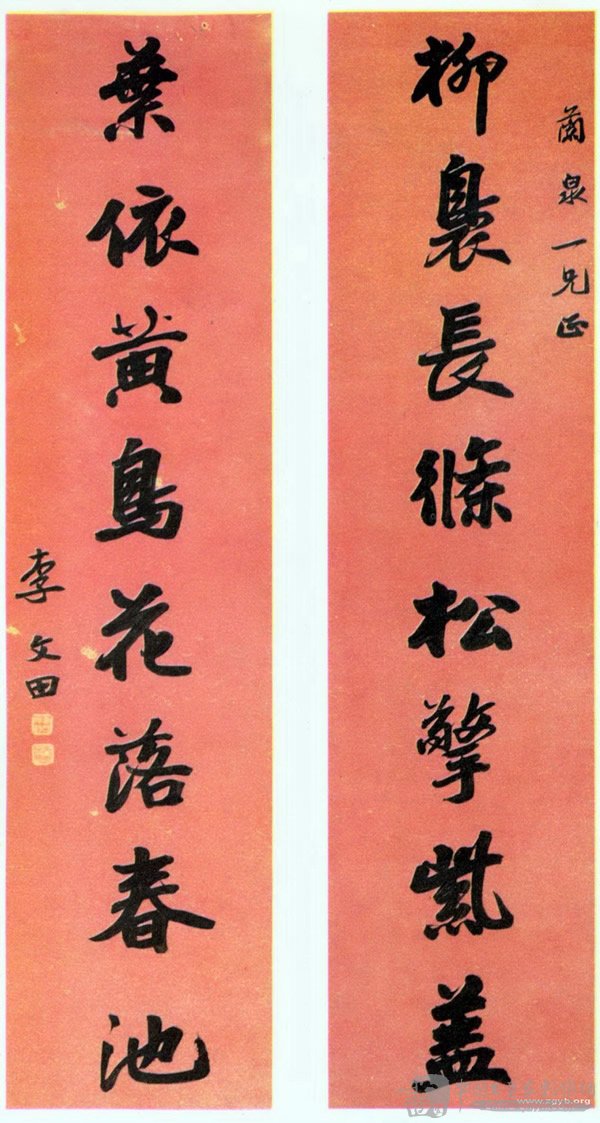 蘭泉一兄正
柳裊長條松擎紫蓋
葉依黃鳥花落春池
李文田
www.zgyb.org